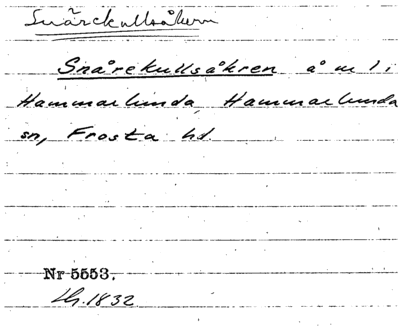 Snårekullsåkern
Snårekullsåkren å m 1 i
Hammarlunda, Hammarlunda
sn, Frosta hd.
Nr 5553.
Lh. 1832